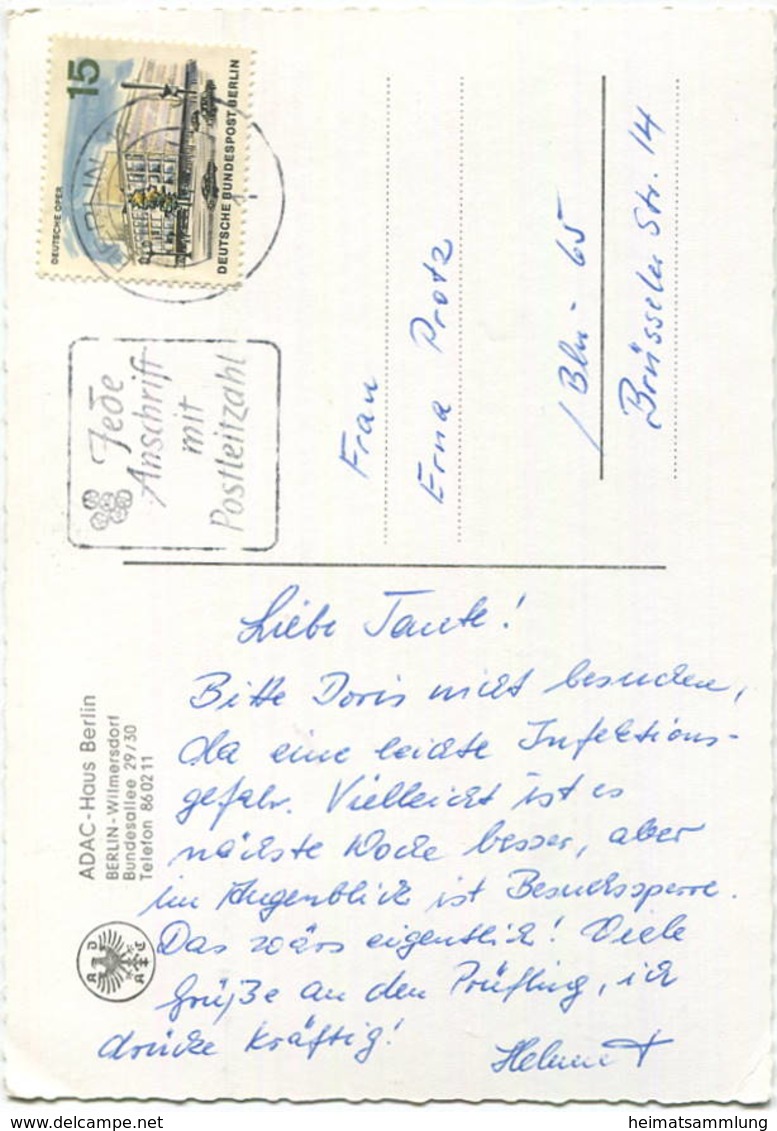 15
DEUTSCHE OPER
DEUTSCHE BUNDESPOST BERLIN
Jede
Anschrift
mit
Postleitzahl
Frau
Erna Protz
1 Bln-65
Brüsseler Str. 14
ADAC-Haus Berlin
BERLIN-Wilmersdorf
Bundesallee 29/30
Telefon 86 02 11
ADAC
Liebe Tante!
Bitte Doris nicht besuchen,
da eine leichte Infektions-
gefahr. Vielleicht ist es
nächste Woche besser, aber
im Augenblick ist Besuchssperre.
Das wärs eigentlich! Viele
Grüße an den Prüfling, ich
drücke kräftig!
Helmut
www.delcampe.net
heimatsammlung